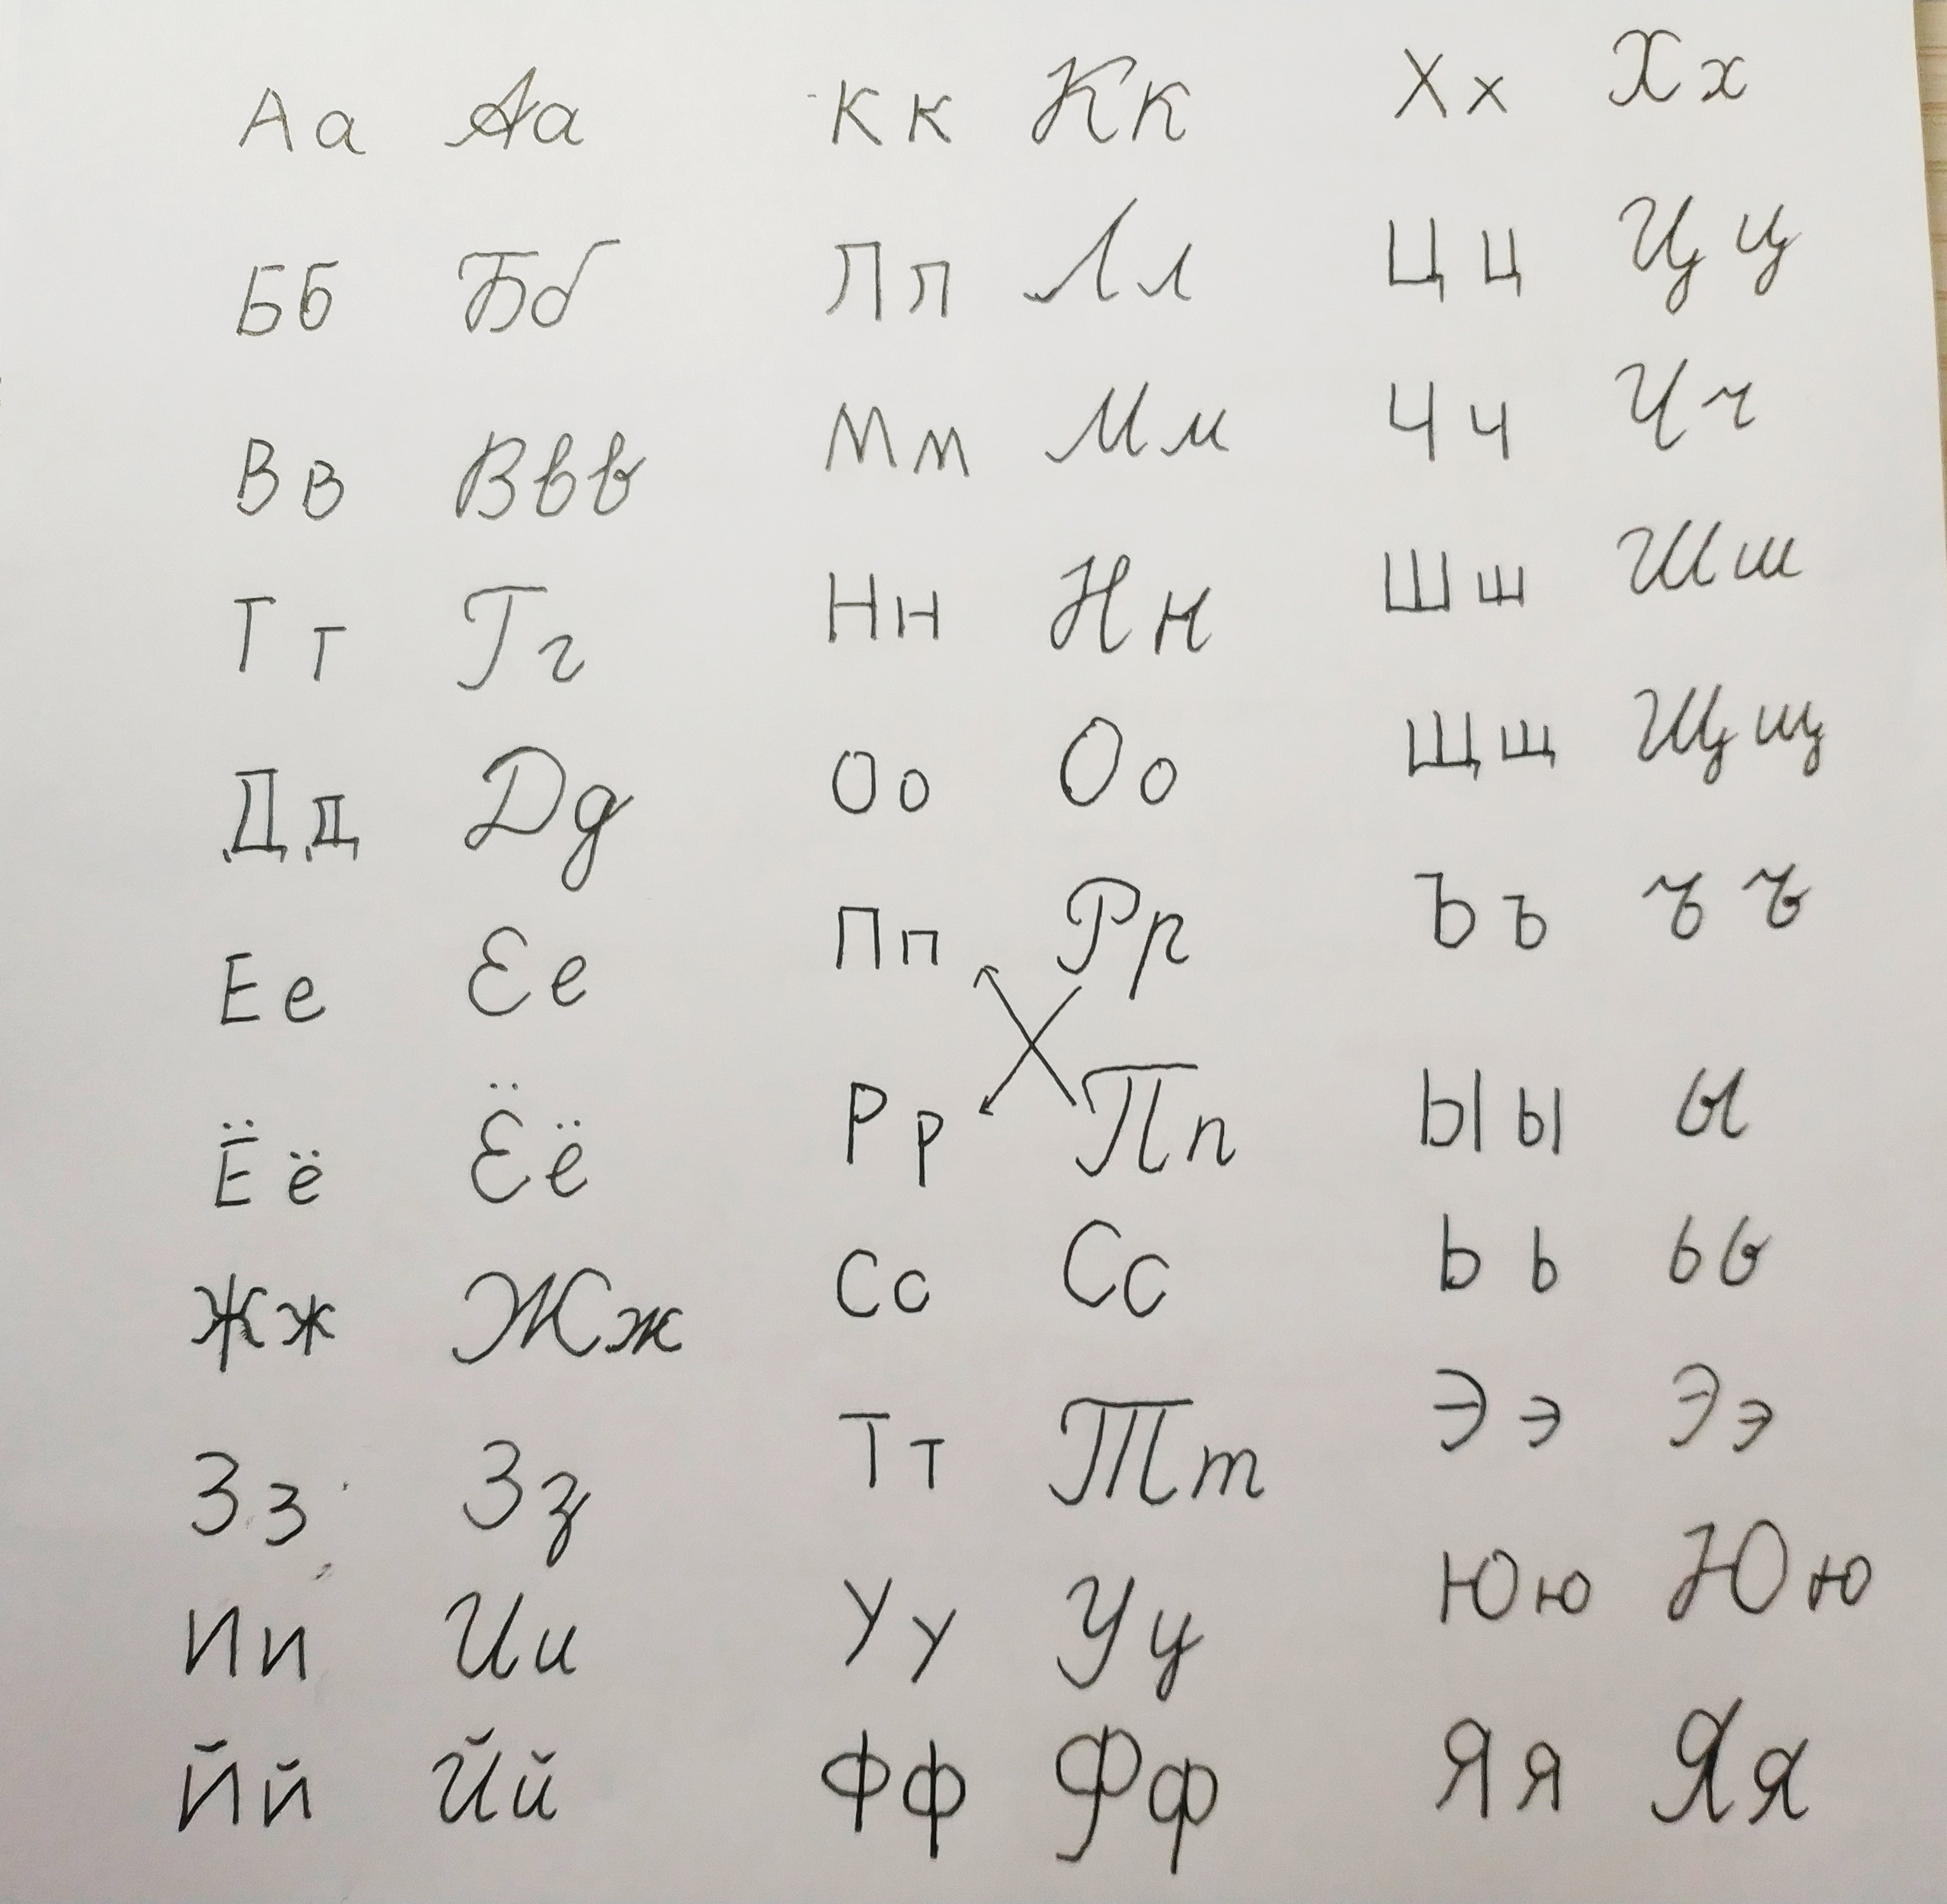 Аа Аа
Бб Бб
Вв Ввв
Гг Гг
Дд Дд
Ее Ее
Ёё Ёё
Жж Жж
Зз Зз
Ии Ии
Йй Йй
Кк Кк
Лл Лл
Мм Мм
Нн Нн
Оо Оо
Пп Рр
Рр Пп
Сс Сс
Тт Тт
Уу Уу
Фф Фф
Хх Хх
Цц Цц
Чч Чч
Шш Шш
Щщ Щщ
Ъъ ъъ
Ыы ы
Ьь ьь
Ээ Ээ
Юю Юю
Яя Яя